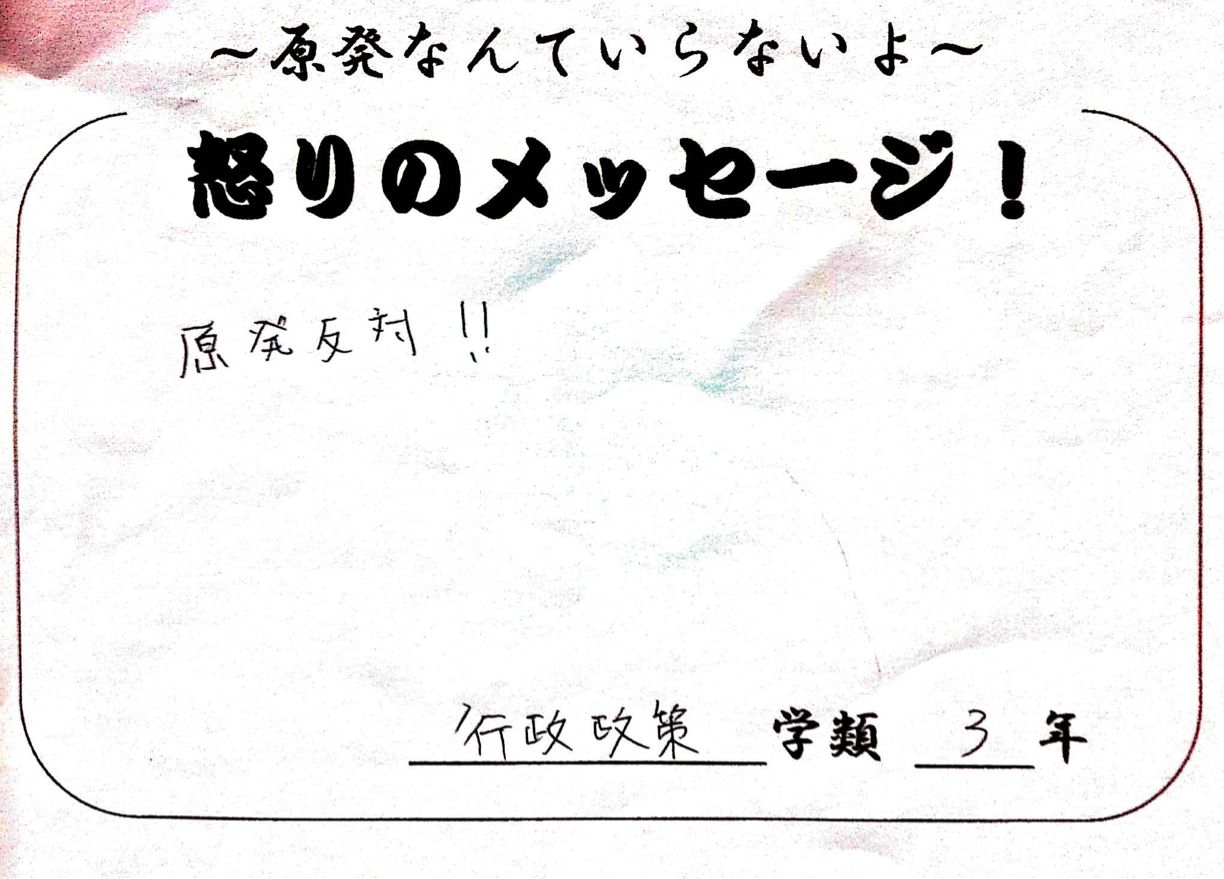 ～原発なんていらないよ～
怒りのメッセージ！
原発反対!!
行政政策 学類 3 年